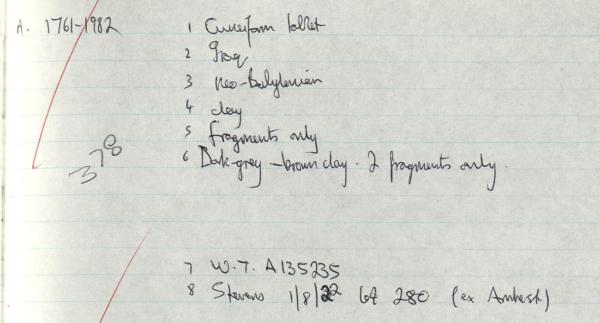 A. 1761-1982 1 Cuneiform tablet
2 Iraq
3 neo-Babylonian
4 clay
5 fragments only
378
6 Dark-grey -brown clay. 2 fragments only.
7 W.T. A135235
8 Stevens 1/8/22 lot 280 (ex Amherst)